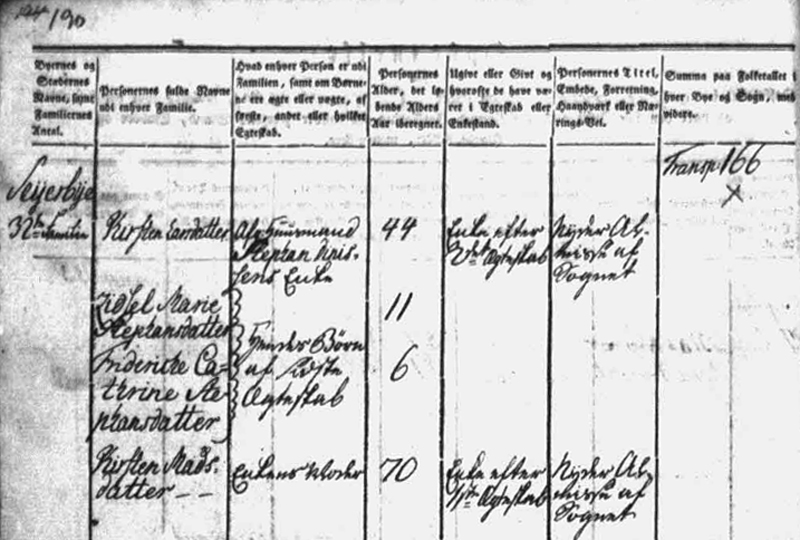 190
Byernes og
Stedernes
Navne, samt
Familiernes
Antal.
Personernes fulde Navne
udi enhver Familie.
Hvad enhver Person er udi
Familien, samt om Børne-
ne ere ægte eller uægte, af
første, andet eller hvilket
Egteskab.
Personernes
Alder, det lø-
bende Alders
Aar iberegnet.
Ugive eller Givt og
hvorofte de have væ-
ret i Egteskab eller
Enkestand.
Personernes Titel,
Embede, Forretning,
Haandværk eller Næ-
rings-Vei.
Summa paa Folketallet i
hver Bye og Sogn, med
videre.
Transp 166
Seyerbye
32te Familie
Kirsten Larsdatter
Afg. Huusmand
Stephan Niis-
sens Enke
44
Enke efter
2det Ægteskab
Nyder Al-
misse af
Sognet
Zidsel Marie
Stephansdatter
11
Frideriche Ca-
thrine Ste-
phansdatter
Hendes Børn
af sidste
Ægteskab
6
Kirsten Mads-
datter
Enkens Moder
70
Enke efter
1ste Ægteskab
Nyder Al-
misse af
Sognet